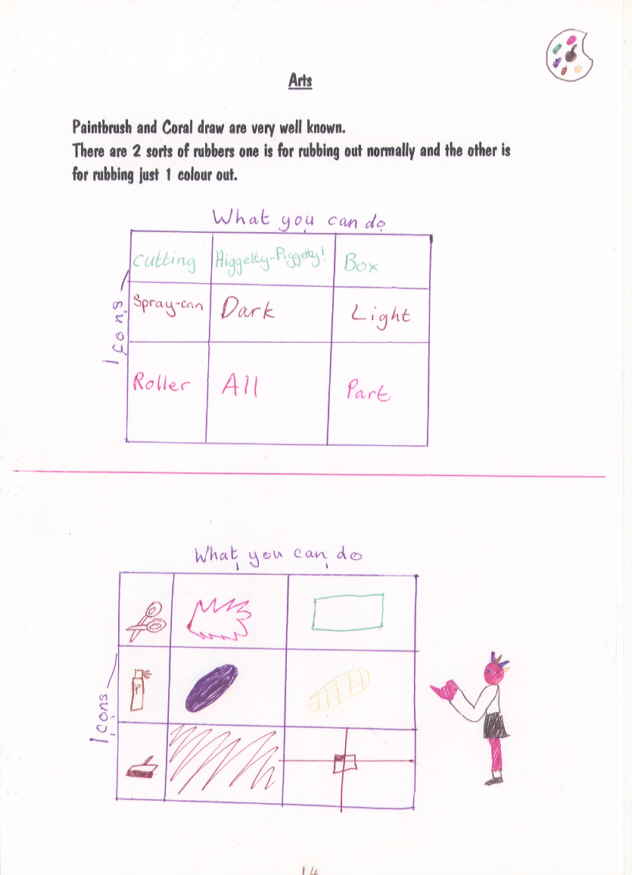 Arts
Paintbrush and Coral draw are very well known.
There are 2 sorts of rubbers one is for rubbing out normally and the other is
for rubbing just 1 colour out.
What you can do
Icons
cutting Higgelty-Piggelty! Box
Spray-can Dark Light
Roller All Part
What you can do
Icons
14